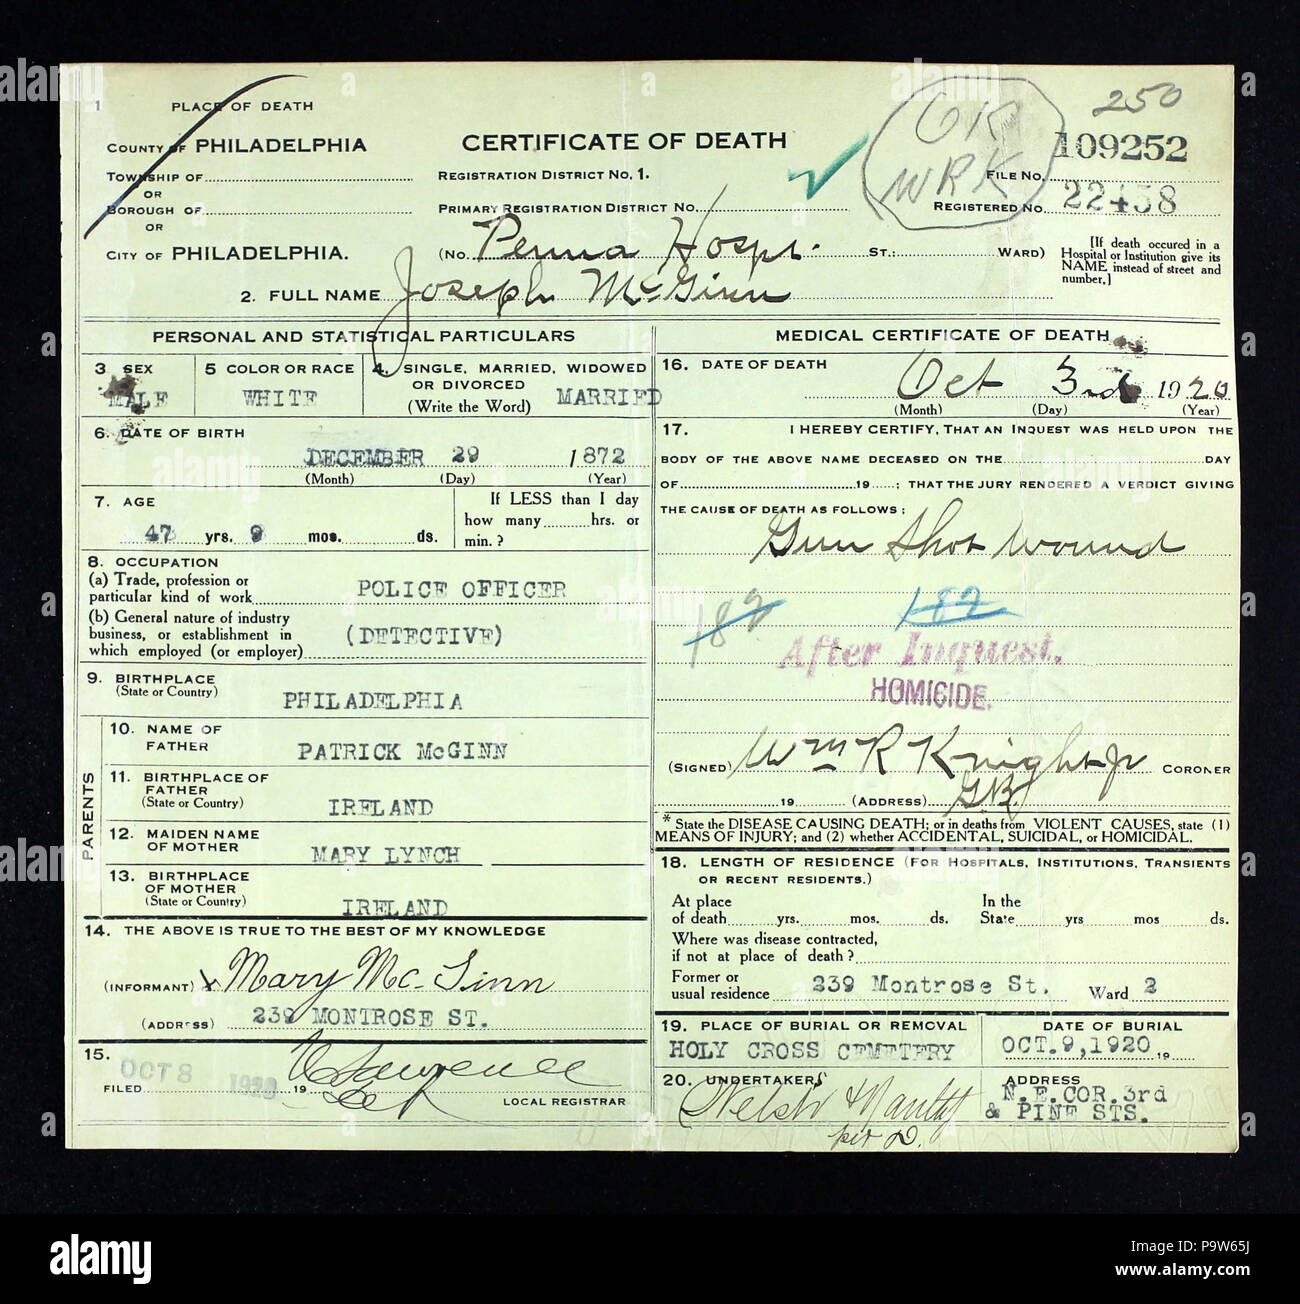 250
1 PLACE OF DEATH
COUNTY OF PHILADELPHIA
CERTIFICATE OF DEATH
OK
WRK
109252
TOWNSHIP OF
REGISTRATION DISTRICT NO. 1.
FILE NO.
OR
BOROUGH OF
PRIMARY REGISTRATION DISTRICT NO.
REGISTERED NO. 22458
OR
CITY OF PHILADELPHIA.
(No. Penna Hospt. ST.: WARD)
[If death occured in a Hospital or Institution give its NAME instead of street and number.]
2. FULL NAME Joseph McGinn
PERSONAL AND STATISTICAL PARTICULARS
3 SEX
MALE
5 COLOR OR RACE
WHITE
4. SINGLE, MARRIED, WIDOWED
OR DIVORCED
(Write the Word) MARRIED
6. DATE OF BIRTH
DECEMBER 29 1872
(Month) (Day) (Year)
7. AGE
47 yrs. 9 mos. ds.
If LESS than 1 day
how many hrs. or
min.?
8. OCCUPATION
(a) Trade, profession or
particular kind of work POLICE OFFICER
(b) General nature of industry
business, or establishment in (DETECTIVE)
which employed (or employer)
9. BIRTHPLACE
(State or Country)
PHILADELPHIA
PARENTS
10. NAME OF
FATHER PATRICK McGINN
11. BIRTHPLACE OF
FATHER
(State or Country) IRELAND
12. MAIDEN NAME
OF MOTHER MARY LYNCH
13. BIRTHPLACE
OF MOTHER
(State or Country) IRELAND
14. THE ABOVE IS TRUE TO THE BEST OF MY KNOWLEDGE
(INFORMANT) x Mary McGinn
(ADDRESS) 239 MONTROSE ST.
15.
FILED OCT 8 1920 19
LOCAL REGISTRAR
MEDICAL CERTIFICATE OF DEATH
16. DATE OF DEATH
Oct 3rd 1920
(Month) (Day) (Year)
17. I HEREBY CERTIFY, THAT AN INQUEST WAS HELD UPON THE
BODY OF THE ABOVE NAME DECEASED ON THE DAY
OF 19 ; THAT THE JURY RENDERED A VERDICT GIVING
THE CAUSE OF DEATH AS FOLLOWS:
Gun Shot Wound
182 182
After Inquest.
HOMICIDE.
(SIGNED) Wm R Knight Jr CORONER
19 (ADDRESS)
* State the DISEASE CAUSING DEATH; or in deaths from VIOLENT CAUSES, state (1)
MEANS OF INJURY; and (2) whether ACCIDENTAL, SUICIDAL, or HOMICIDAL.
18. LENGTH OF RESIDENCE (FOR HOSPITALS, INSTITUTIONS, TRANSIENTS
OR RECENT RESIDENTS.)
At place In the
of death yrs. mos. ds. State yrs mos ds.
Where was disease contracted,
if not at place of death?
Former or
usual residence 239 Montrose St. Ward 2
19. PLACE OF BURIAL OR REMOVAL
HOLY CROSS CEMETERY
DATE OF BURIAL
OCT.9,1920 19
20. UNDERTAKERS
per D.
ADDRESS
N.E.COR.3rd
& PINE STS.
alamy
Image ID: P9W65J
www.alamy.com